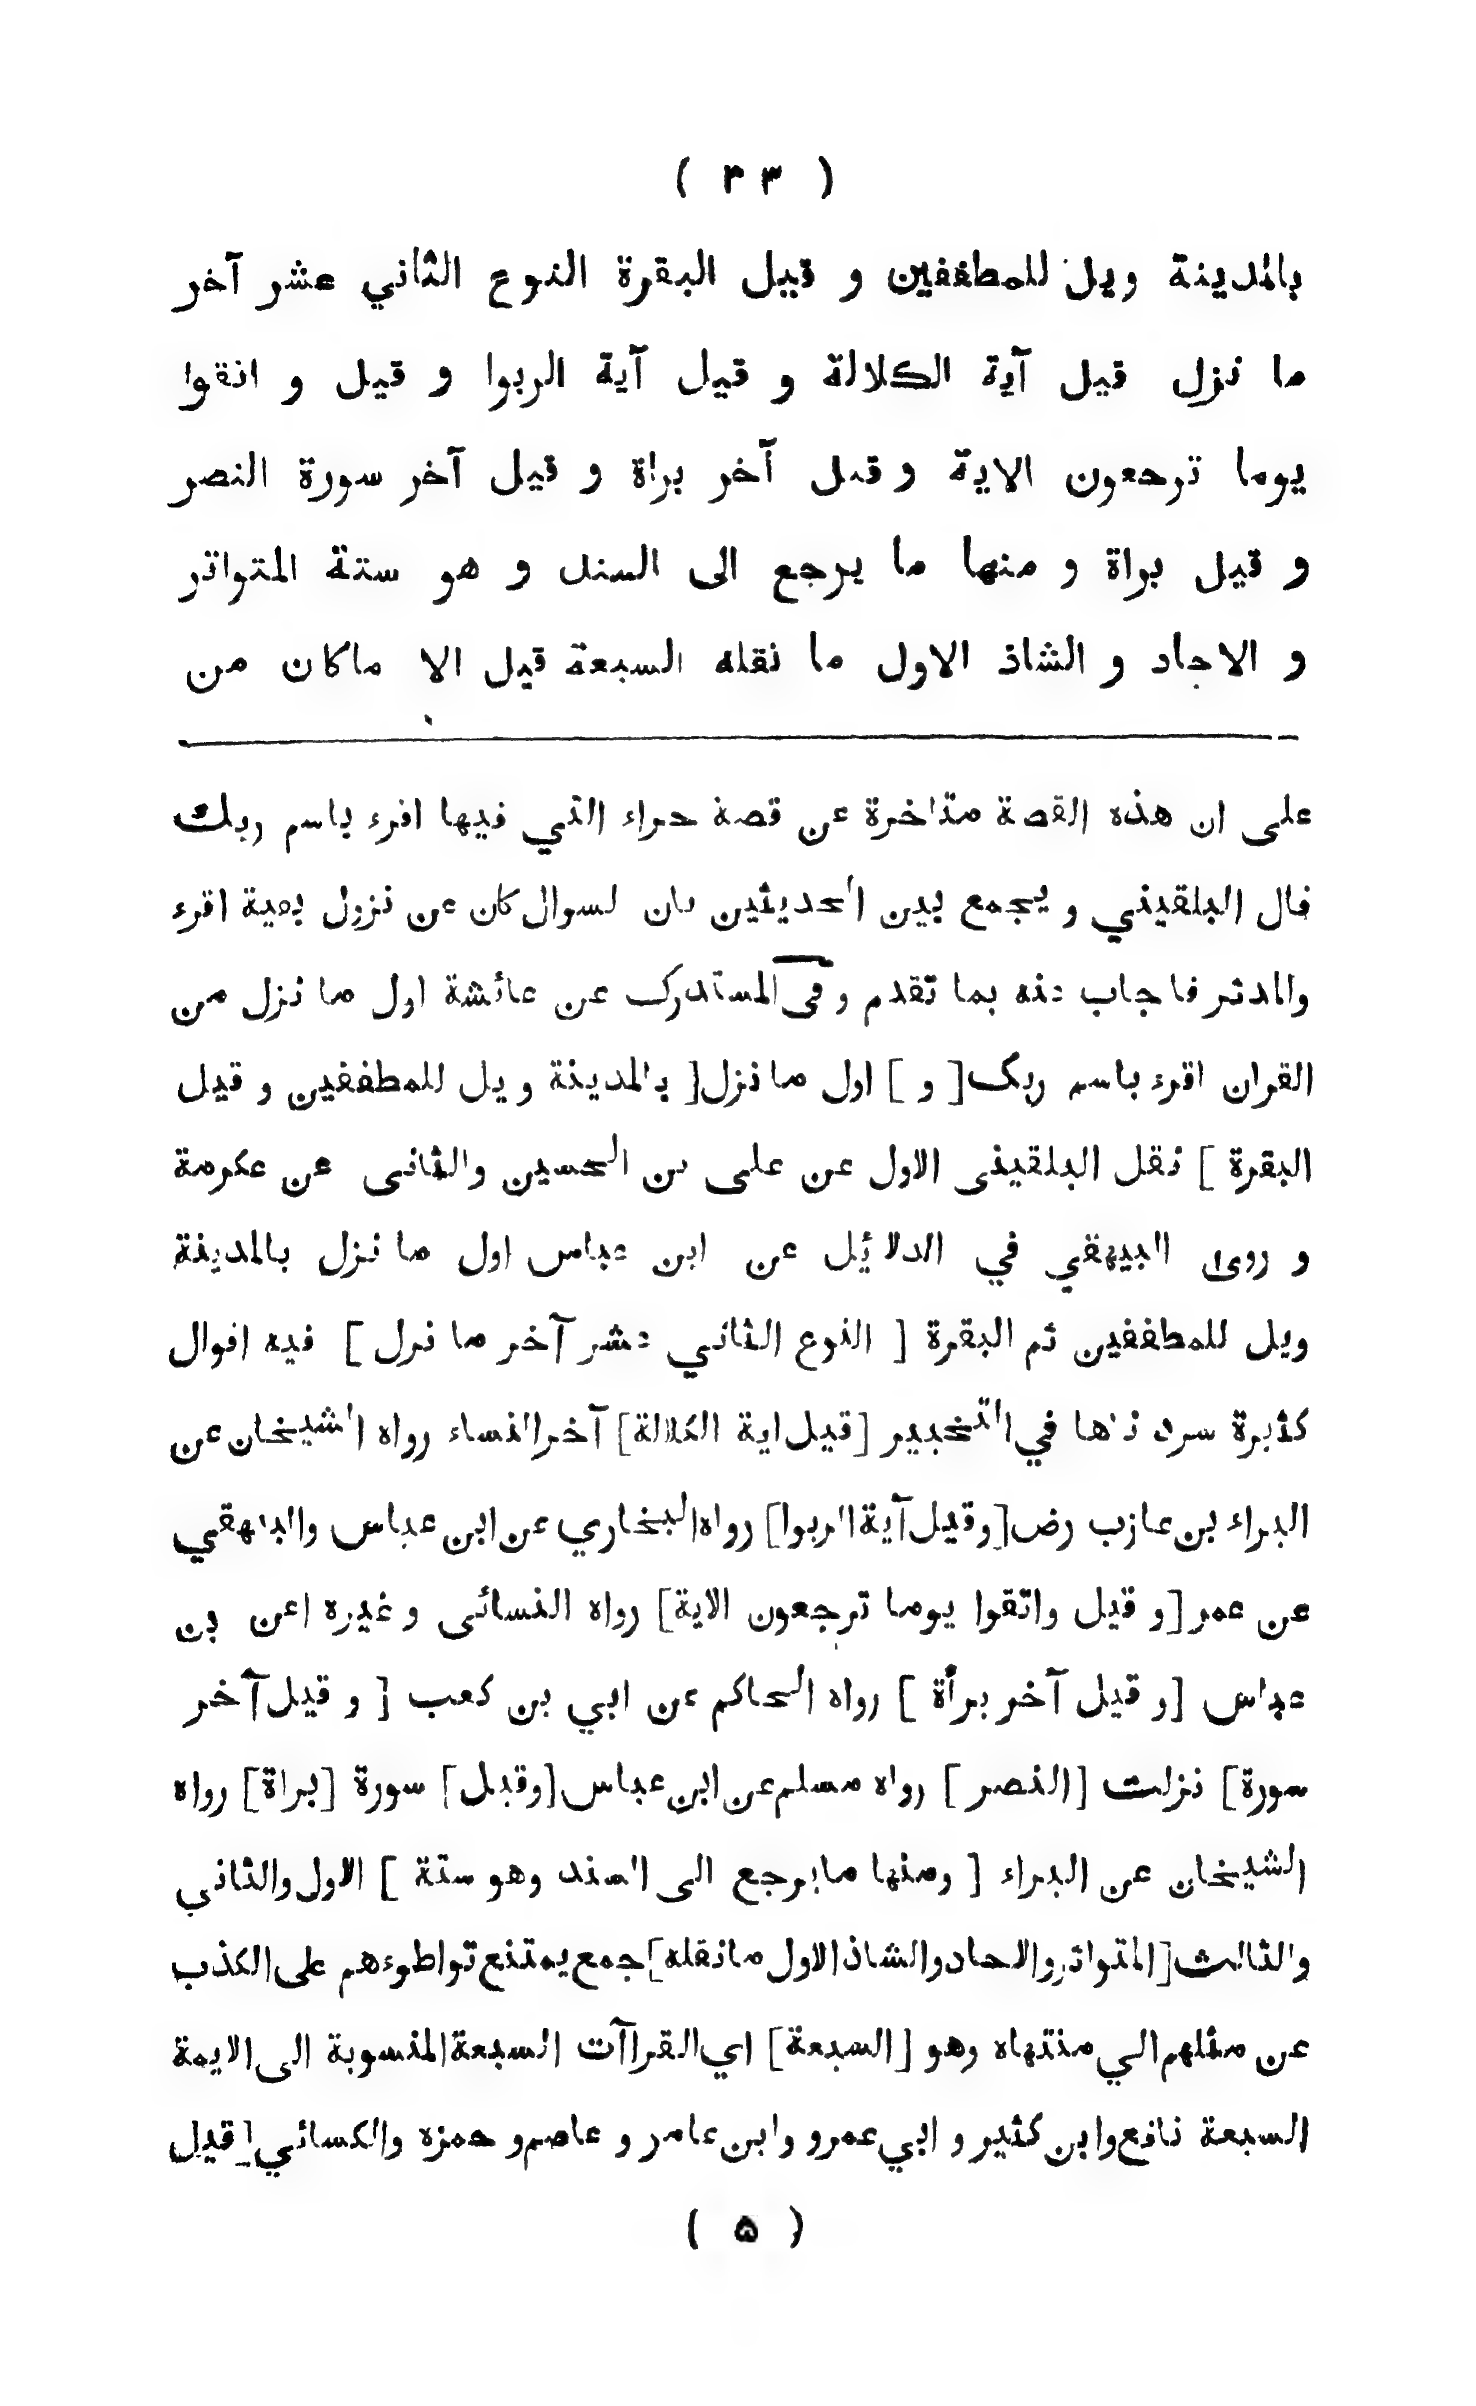 ( ٣٣ )
بالمدينة ويل للمطففين و قيل البقرة النوع الثاني عشر آخر
ما نزل قيل آية الكلالة و قيل آية الربوا و قيل و اتقوا
يوما ترجعون الاية و قيل آخر براة و قيل آخر سورة النصر
و قيل براة و منها ما يرجع الى السند و هو ستة المتواتر
و الاحاد و الشاذ الاول ما نقله السبعة قيل الا ماكان من
على ان هذه القصة متاخرة عن قصة حراء التي فيها اقرء باسم ربك
قال البلقيني و يجمع بين الحديثين بان السوال كان عن نزول بقية اقرء
والمدثر فاجاب عنه بما تقدم و في المستدرك عن عائشة اول ما نزل من
القران اقرء باسم ربك [ و ] اول ما نزل [ بالمدينة ويل للمطففين و قيل
البقرة ] نقل البلقيني الاول عن على بن الحسين والثاني عن عكرمة
و روى البيهقي في الدلائل عن ابن عباس اول ما نزل بالمدينة
ويل للمطففين ثم البقرة [ النوع الثاني عشر آخر ما نزل ] فيه اقوال
كثيرة سردناها في التحبير [ قيل اية الكلالة ] آخر النساء رواه الشيخان عن
البراء بن عازب رض [ وقيل آية الربوا ] رواه البخاري عن ابن عباس والبيهقي
عن عمر [ و قيل واتقوا يوما ترجعون الاية ] رواه النسائي و غيره عن بن
عباس [ و قيل آخر برأة ] رواه الحاكم عن ابي بن كعب [ و قيل آخر
سورة ] نزلت [ النصر ] رواه مسلم عن ابن عباس [ وقيل ] سورة [ براة ] رواه
الشيخان عن البراء [ ومنها ما يرجع الى السند وهو ستة ] الاول والثاني
والثالث [ المتواتر والاحاد والشاذ الاول ما نقله ] جمع يمتنع تواطوءهم على الكذب
عن مثلهم الي منتهاه وهو [ السبعة ] اي القراآت السبعة المنسوبة الى الايمة
السبعة نافع وابن كثير و ابي عمرو وابن عامر و عاصم و حمزه والكسائي [ قيل
( ۵ )